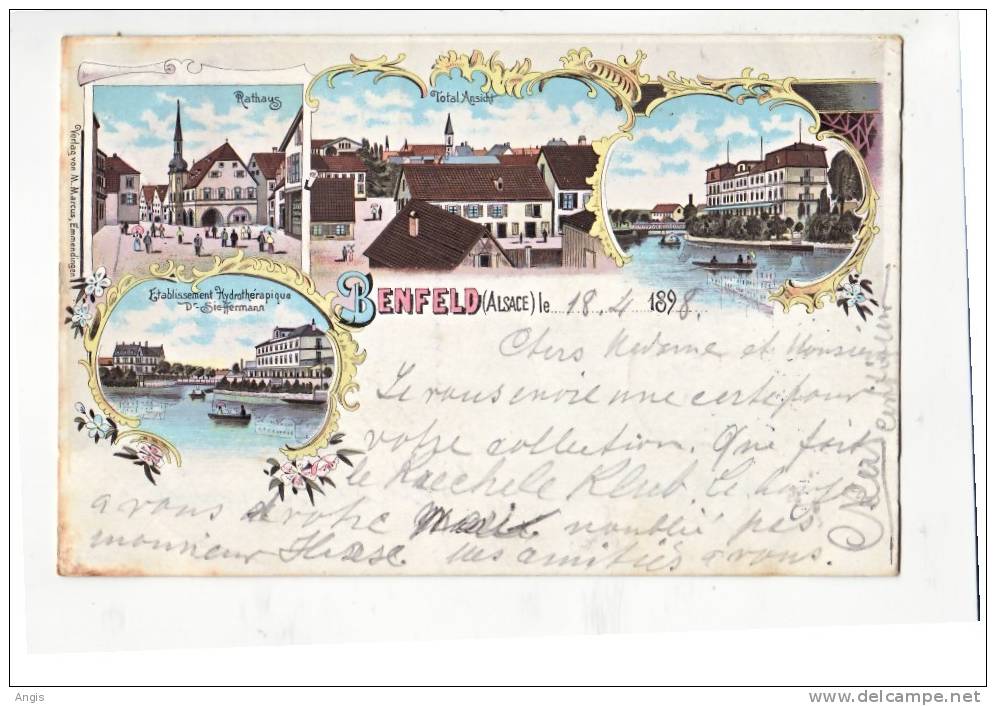 Rathaus
Total Ansicht
Verlag von M. Marcus, Emmendingen
Etablissement Hydrothérapique
Dr Sieffermann
BENFELD (ALSACE) le 18.4 1898.
Chers Madame et Monsieur
Je vous envoie une carte pour
votre collection. Que fait
le Kaechele Klub. Le
a vous votre noublié pas
monsieur mes amitiés a vous.
Angis
www.delcampe.net